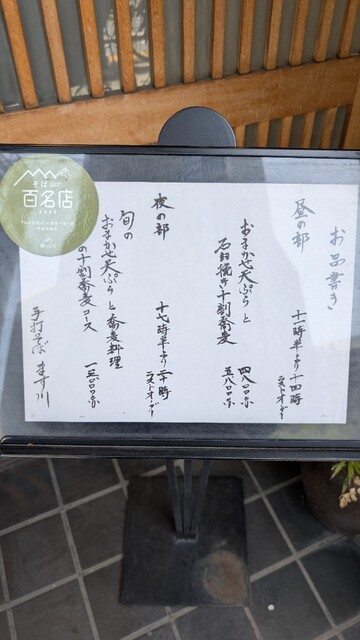 お品書き
昼の部 十一時半より十四時
ラストオーダー
おまかせ天ぷらと
石臼挽き十割蕎麦
四八〇〇より
五八〇〇より
夜の部 十七時半より二十時
ラストオーダー
旬の
おまかせ天ぷらと蕎麦料理
の十割蕎麦コース
手打そば ます川
そば
百名店
2024